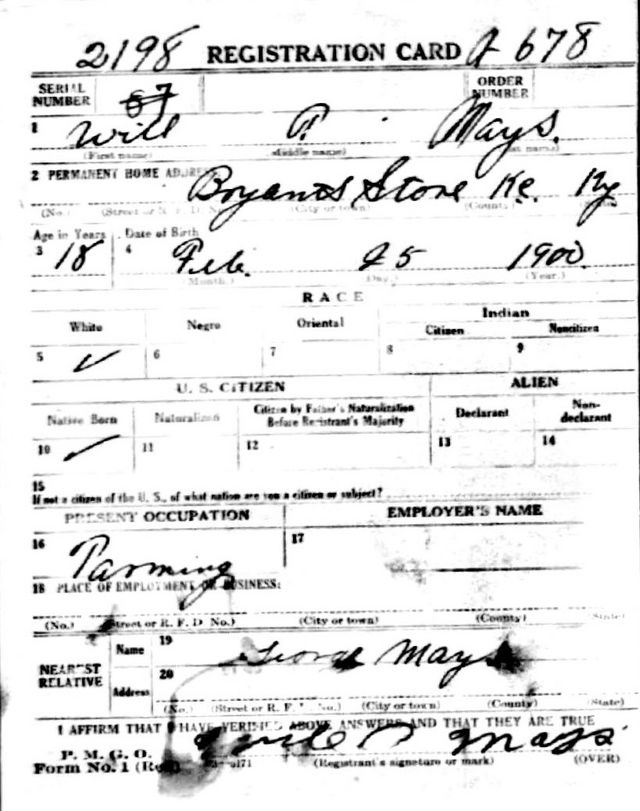 2198 REGISTRATION CARD A 678
SERIAL NUMBER 67 ORDER NUMBER
1 Will P. Mays.
(First name) (Middle name) (Last name)
2 PERMANENT HOME ADDRESS: Bryants Store Ky
(No.) (Street or R. F. D. No.) (City or town) (County) (State)
Age in Years Date of Birth
3 18 4 Feb. 25 1900
(Month.) (Day.) (Year.)
RACE
White Negro Oriental Indian
Citizen Noncitizen
5 ✓ 6 7 8 9
U. S. CITIZEN ALIEN
Native Born Naturalized Citizen by Father's Naturalization Before Registrant's Majority Declarant Non-declarant
10 ✓ 11 12 13 14
15
If not a citizen of the U. S., of what nation are you a citizen or subject?
PRESENT OCCUPATION EMPLOYER'S NAME
16 Farming 17
18 PLACE OF EMPLOYMENT OR BUSINESS:
(No.) (Street or R. F. D. No.) (City or town) (County) (State)
NEAREST RELATIVE Name 19 George Mays
Address 20
(No.) (Street or R. F. D. No.) (City or town) (County) (State)
I AFFIRM THAT I HAVE VERIFIED ABOVE ANSWERS AND THAT THEY ARE TRUE
P. M. G. O.
Form No. 1 (Red) Mays
(Registrant's signature or mark) (OVER)